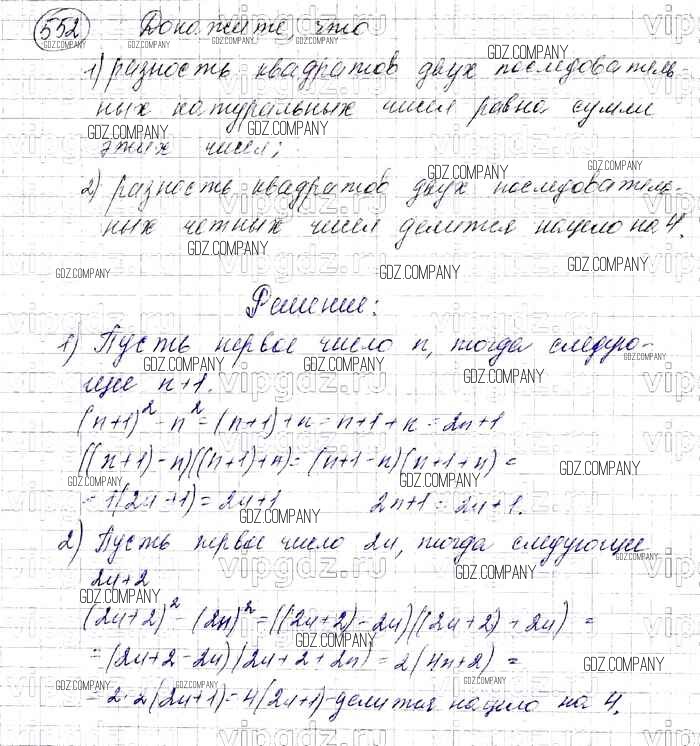 552 Докажите, что
1) разность квадратов двух последователь-
ных натуральных чисел равна сумме
этих чисел;
2) разность квадратов двух последователь-
ных четных чисел делится нацело на 4.
Решение:
1) Пусть первое число n, тогда следую-
щее n+1.
(n+1)² - n² = (n+1)+n = n+1+n = 2n+1
((n+1)-n)((n+1)+n) = (n+1-n)(n+1+n) =
= 1(2n+1) = 2n+1 2n+1 = 2n+1.
2) Пусть первое число 2n, тогда следующее
2n+2
(2n+2)² - (2n)² = ((2n+2)-2n)((2n+2)+2n) =
= (2n+2-2n)(2n+2+2n) = 2(4n+2) =
= 2·2(2n+1) = 4(2n+1) - делится нацело на 4.
GDZ.COMPANY
vipgdz.ru